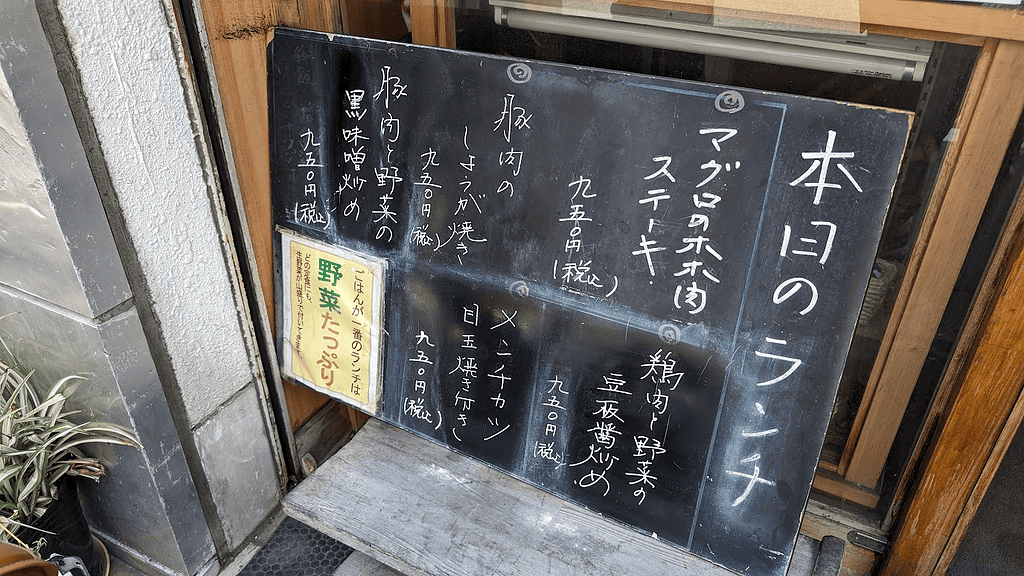 本日のランチ
マグロのホホ肉
ステーキ
九五〇円(税込)
豚肉の
しょうが焼き
九五〇円(税込)
豚肉と野菜の
黒味噌炒め
九五〇円(税込)
鶏肉と野菜の
豆板醤炒め
九五〇円(税込)
メンチカツ
目玉焼き付き
九五〇円(税込)
ごはんが一番のランチは
野菜たっぷり
どの定食にも、
生野菜が山盛りで付いてきます。